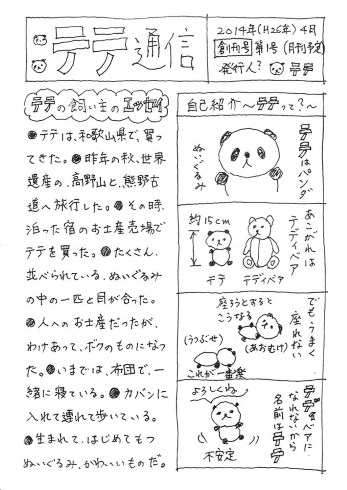 テテ通信
2014年(H26年)4月
創刊号 第1号 (月刊予定)
発行人? テテ
テテの飼い主のエッセイ
●テテは、和歌山県で、買っ
てきた。●昨年の秋、世界
遺産の、高野山と、熊野古
道へ旅行した。●その時、
泊った宿のお土産売場で
テテを買った。●たくさん、
並べられている、ぬいぐるみ
の中の一匹と目が合った。
●人へのお土産だったが、
わけあって、ボクのものになっ
た。●いまでは、布団で、一
緒に寝ている。●カバンに
入れて連れて歩いている。
●生まれて、はじめてもつ
ぬいぐるみ、かわいいものだ。
自己紹介〜テテって?〜
テテはパンダ
ぬいぐるみ
あこがれは
テディベア
約15cm
テテ
テディベア
でもうまく
座れない
座ろうとすると
こうなる
(うつぶせ)
(あおむけ)
これが一番楽
テディベアに
なれないから
名前はテテ
よろしくね
不安定